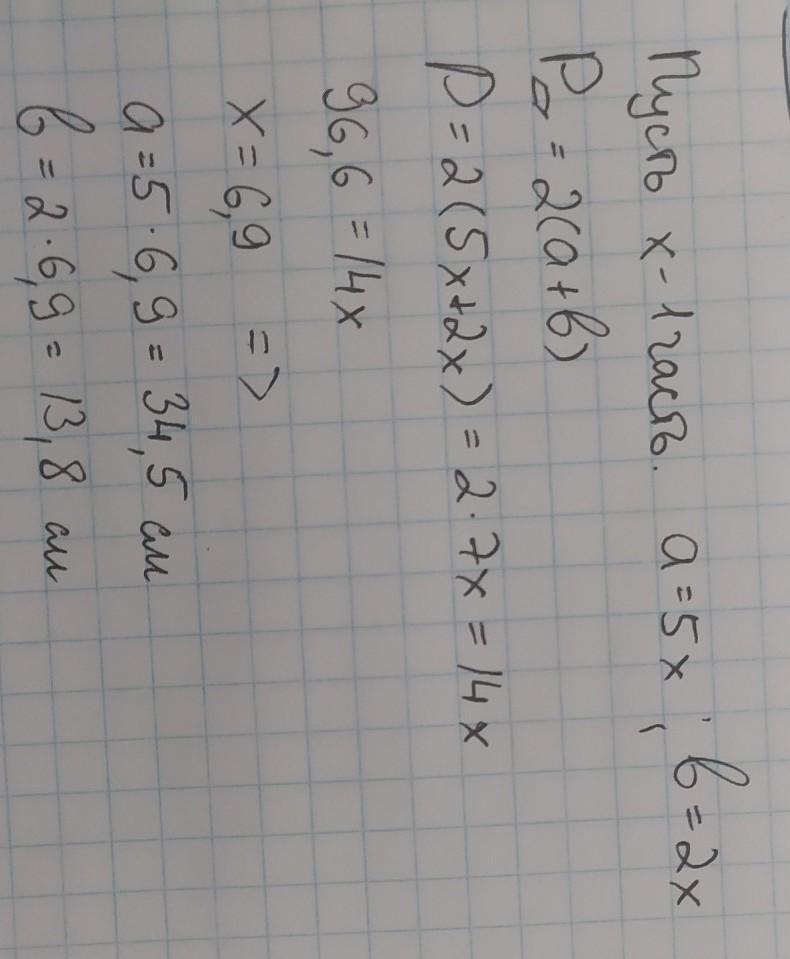 Пусть x - 1 часть. a = 5x ; b = 2x
P▱ = 2(a + b)
P = 2(5x + 2x) = 2 · 7x = 14x
96,6 = 14x
x = 6,9 =>
a = 5 · 6,9 = 34,5 см
b = 2 · 6,9 = 13,8 см